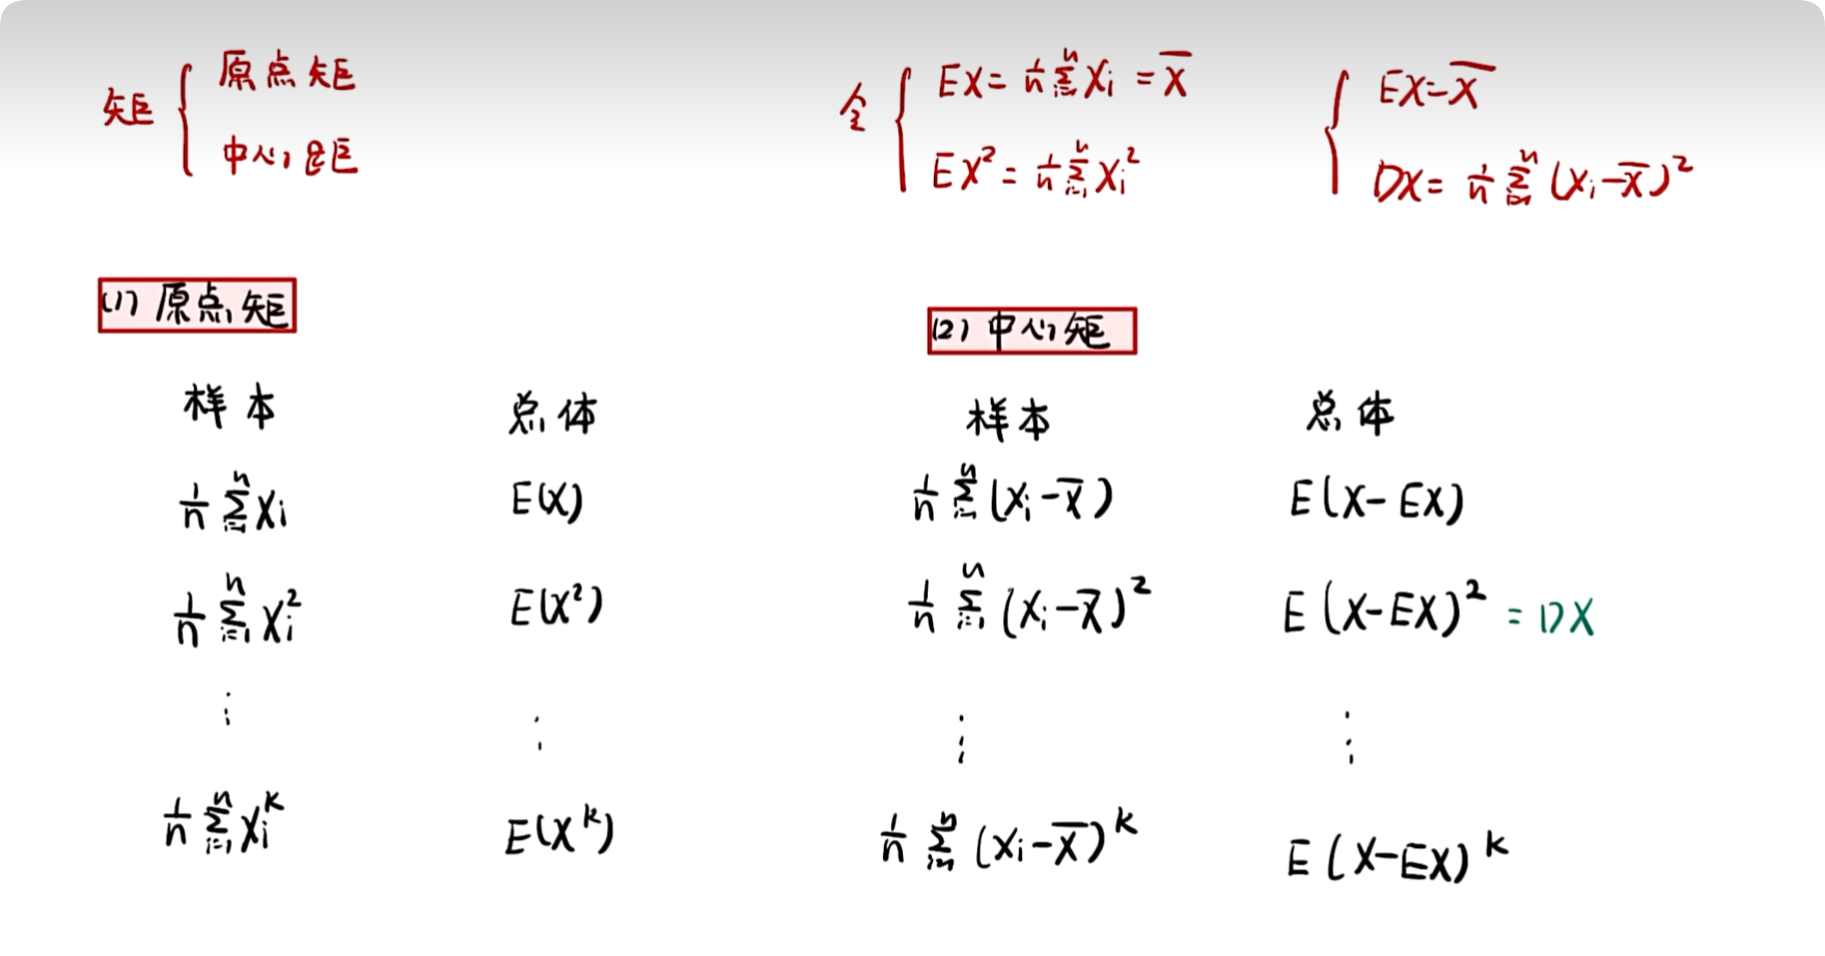 矩 { 原点矩
中心矩
令 { EX = 1/n Σ(i=1→n) Xi = X̄
EX² = 1/n Σ(i=1→n) Xi²
{ EX = X̄
DX = 1/n Σ(i=1→n) (Xi - X̄)²
(1) 原点矩
样本 总体
1/n Σ(i=1→n) Xi E(X)
1/n Σ(i=1→n) Xi² E(X²)
⋮ ⋮
1/n Σ(i=1→n) Xi^k E(X^k)
(2) 中心矩
样本 总体
1/n Σ(i=1→n) (Xi - X̄) E(X - EX)
1/n Σ(i=1→n) (Xi - X̄)² E(X - EX)² = DX
⋮ ⋮
1/n Σ(i=1→n) (Xi - X̄)^k E(X - EX)^k